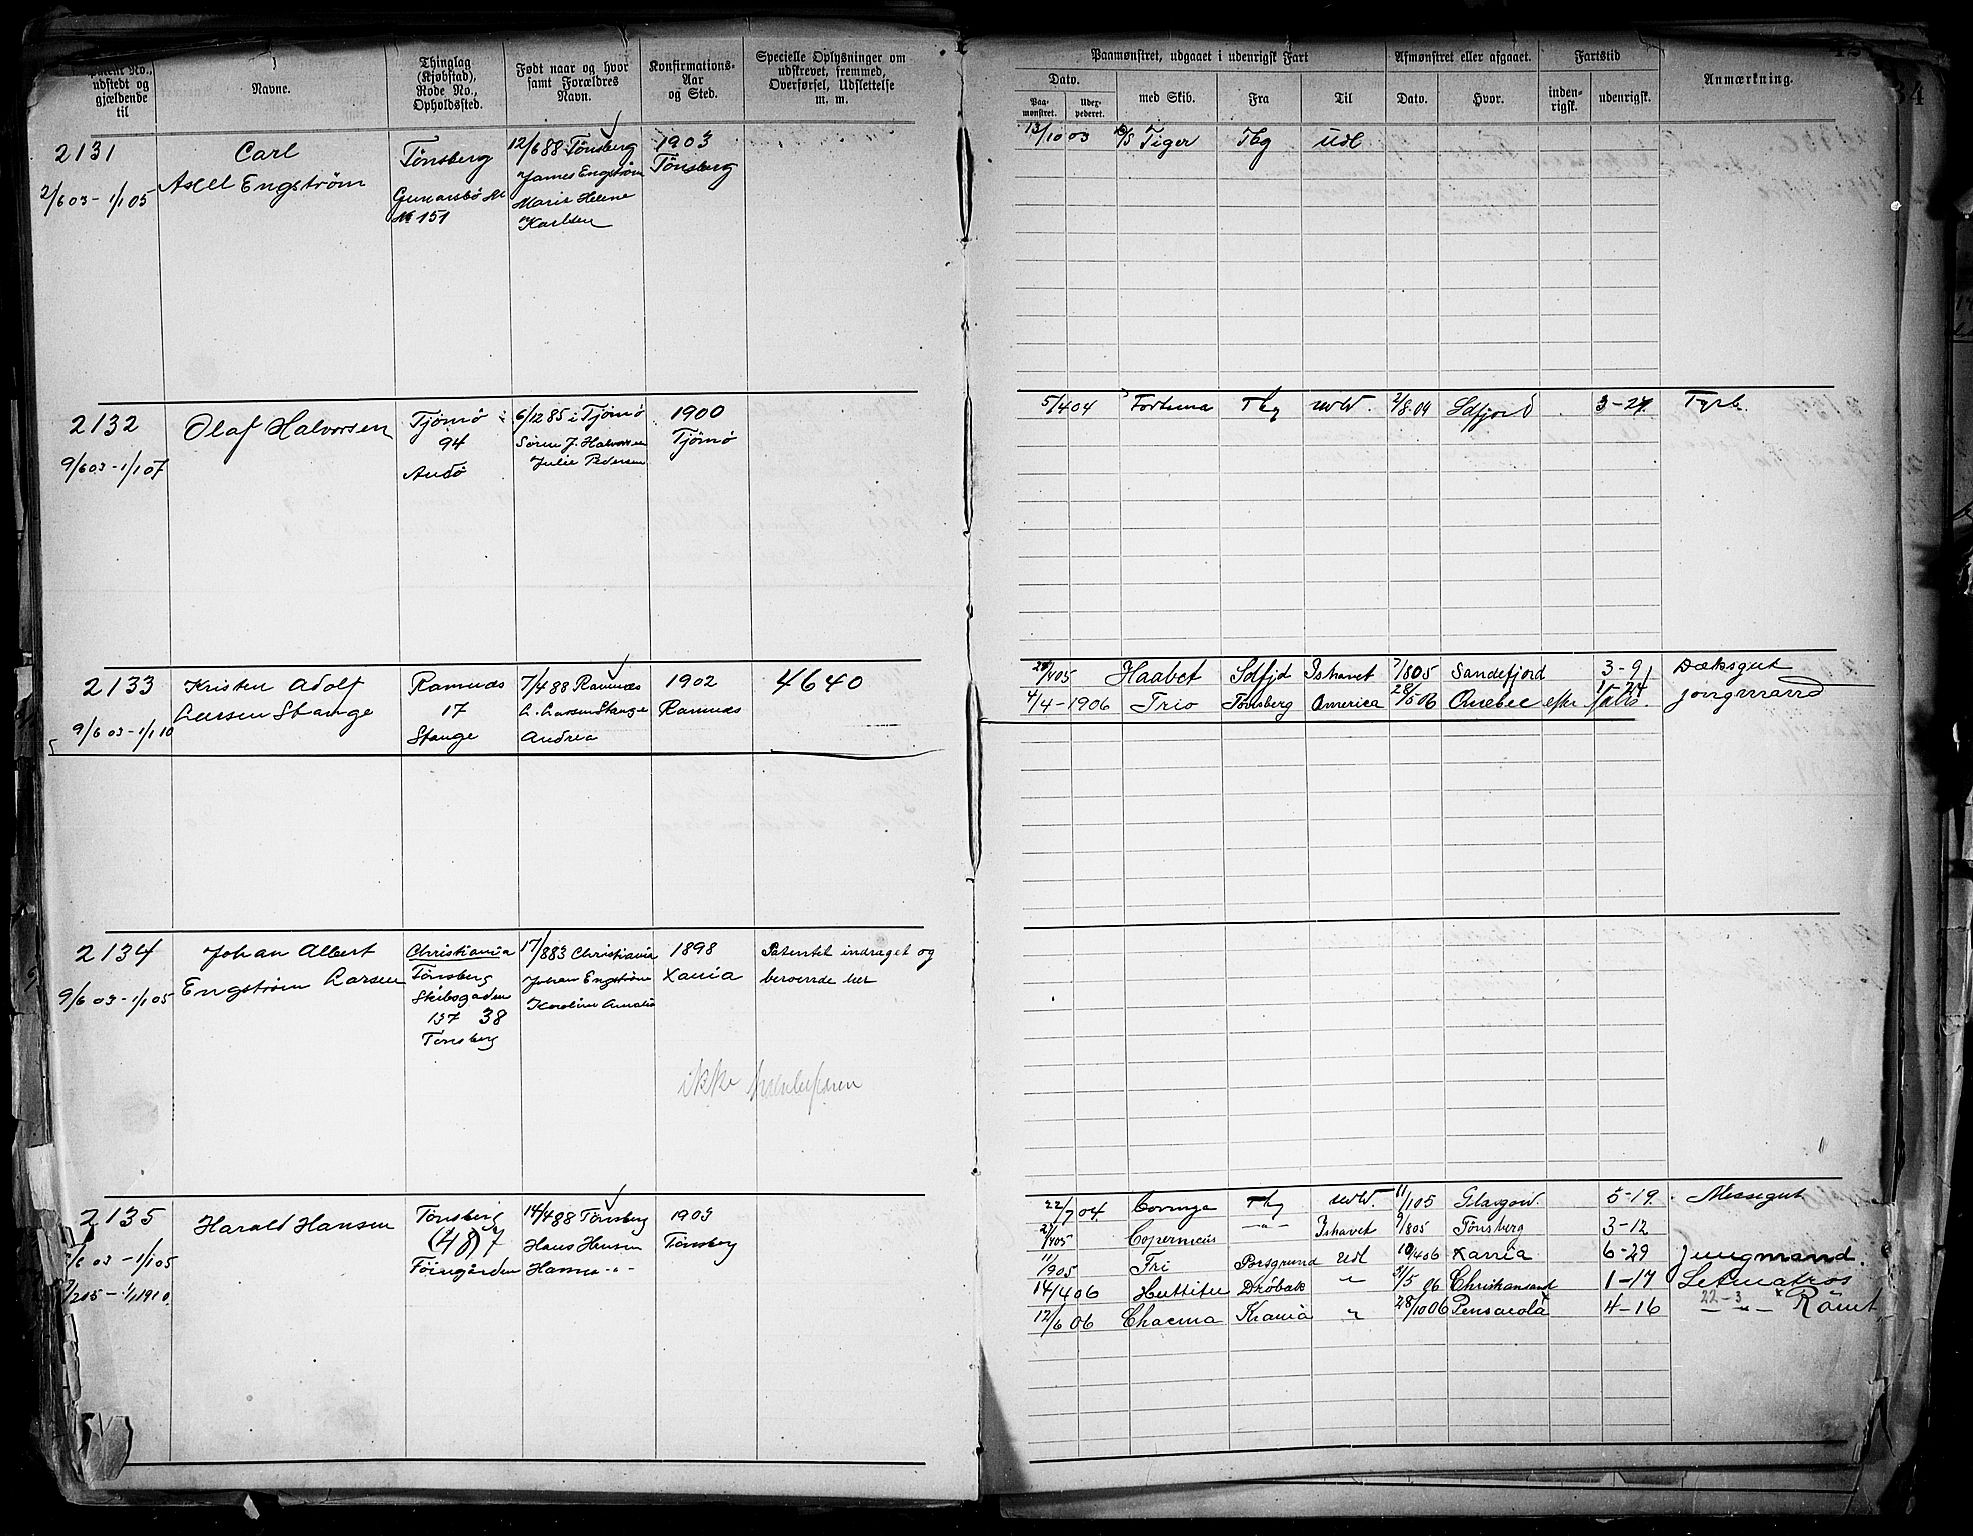 Patent No.,
udstedt og
gjældende
til
Navne.
Thinglag
(Kjøbstad),
Rode No.,
Opholdssted.
Født naar og hvor
samt Forældres
Navn.
Konfirmations-
Aar
og Sted.
Specielle Oplysninger om
udskrevet, fremmed,
Overførsel, Udslettelse
m. m.
Paamønstret, udgaaet i udenrigsk Fart
Dato.
Paa-
mønstret.
med Skib.
Fra
Til
Afmønstret eller afgaaet.
Dato.
Hvor.
Fartstid
inden-
rigsk.
udenrigsk.
Anmærkning.
2131
2/6 03 - 1/1 05
Carl
Axel Engstrøm
Tønsberg
№ 151
12/6 88 Tønsberg
James Engstrøm
Marie Helene
Karlsen
1903
Tønsberg
13/10 03 Tiger Tbg Udl
2132
9/6 03 - 1/1 07
Olaf Halvorsen
Tjømø
94
6/12 85 i Tjømø
Søren J. Halvorsen
Julie Pedersen
1900
Tjømø
5/4 04 Fortuna Tbg udl. 2/8.04 Sdfjord 3-27.
2133
9/6 03 - 1/1 10
Kristen Adolf
Larsen Stange
Ramnæs
17
Stange
7/4 88 Ramnæs
L. Larsen Stange
Andrea
1902
Ramnæs
4640
Haabet Sdfjd Ishavet 7/8 05 Sandefjord 3-9 Dæksgut
4/4-1906 Trio Tønsberg America 28/5 06 Quebec jongmand
2134
9/6 03 - 1/1 05
Johan Albert
Engstrøm Larsen
Christiania
Tønsberg
Skibsgaden
137 38
Tønsberg
17/8 83 Christiania
Johan Engstrøm
Karoline Amalia
1898
Xania
Patentet indraget og
beroende her
ikke
2135
1/1 05
1/1 1910
Harald Hansen
Tønsberg
(48) 7
14/4 88 Tønsberg
Hans Hansen
Hanna -"-
1903
Tønsberg
22/7 04. Tbg udl. 11/1 05 Glasgow. 5-19. Messegut
Copernicus -"- Ishavet 9/8 05 Tønsberg 3-12
11/9 05 Fri Porsgrund Udl 10/4 06 Xania 6-29 Jungmand.
14/4 06 Drøbak " 31/5 06 Christiansand 1-17 Letmatros
12/6 06 Chacma Krania " 28/10 06 Pensacola 4-16 22-3 -"- Rømt